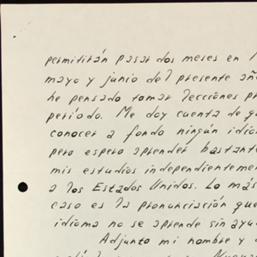 permitirán pasar dos meses en
mayo y junio del presente añ
he pensado tomar lecciones pr
período. Me doy cuenta de qu
conocer a fondo ningún idio
pero espero aprender bastant
mis estudios independienteme
a los Estados Unidos. Lo más
caso es la pronunciación que
idioma no se aprende sin ayu
Adjunto mi nombre y